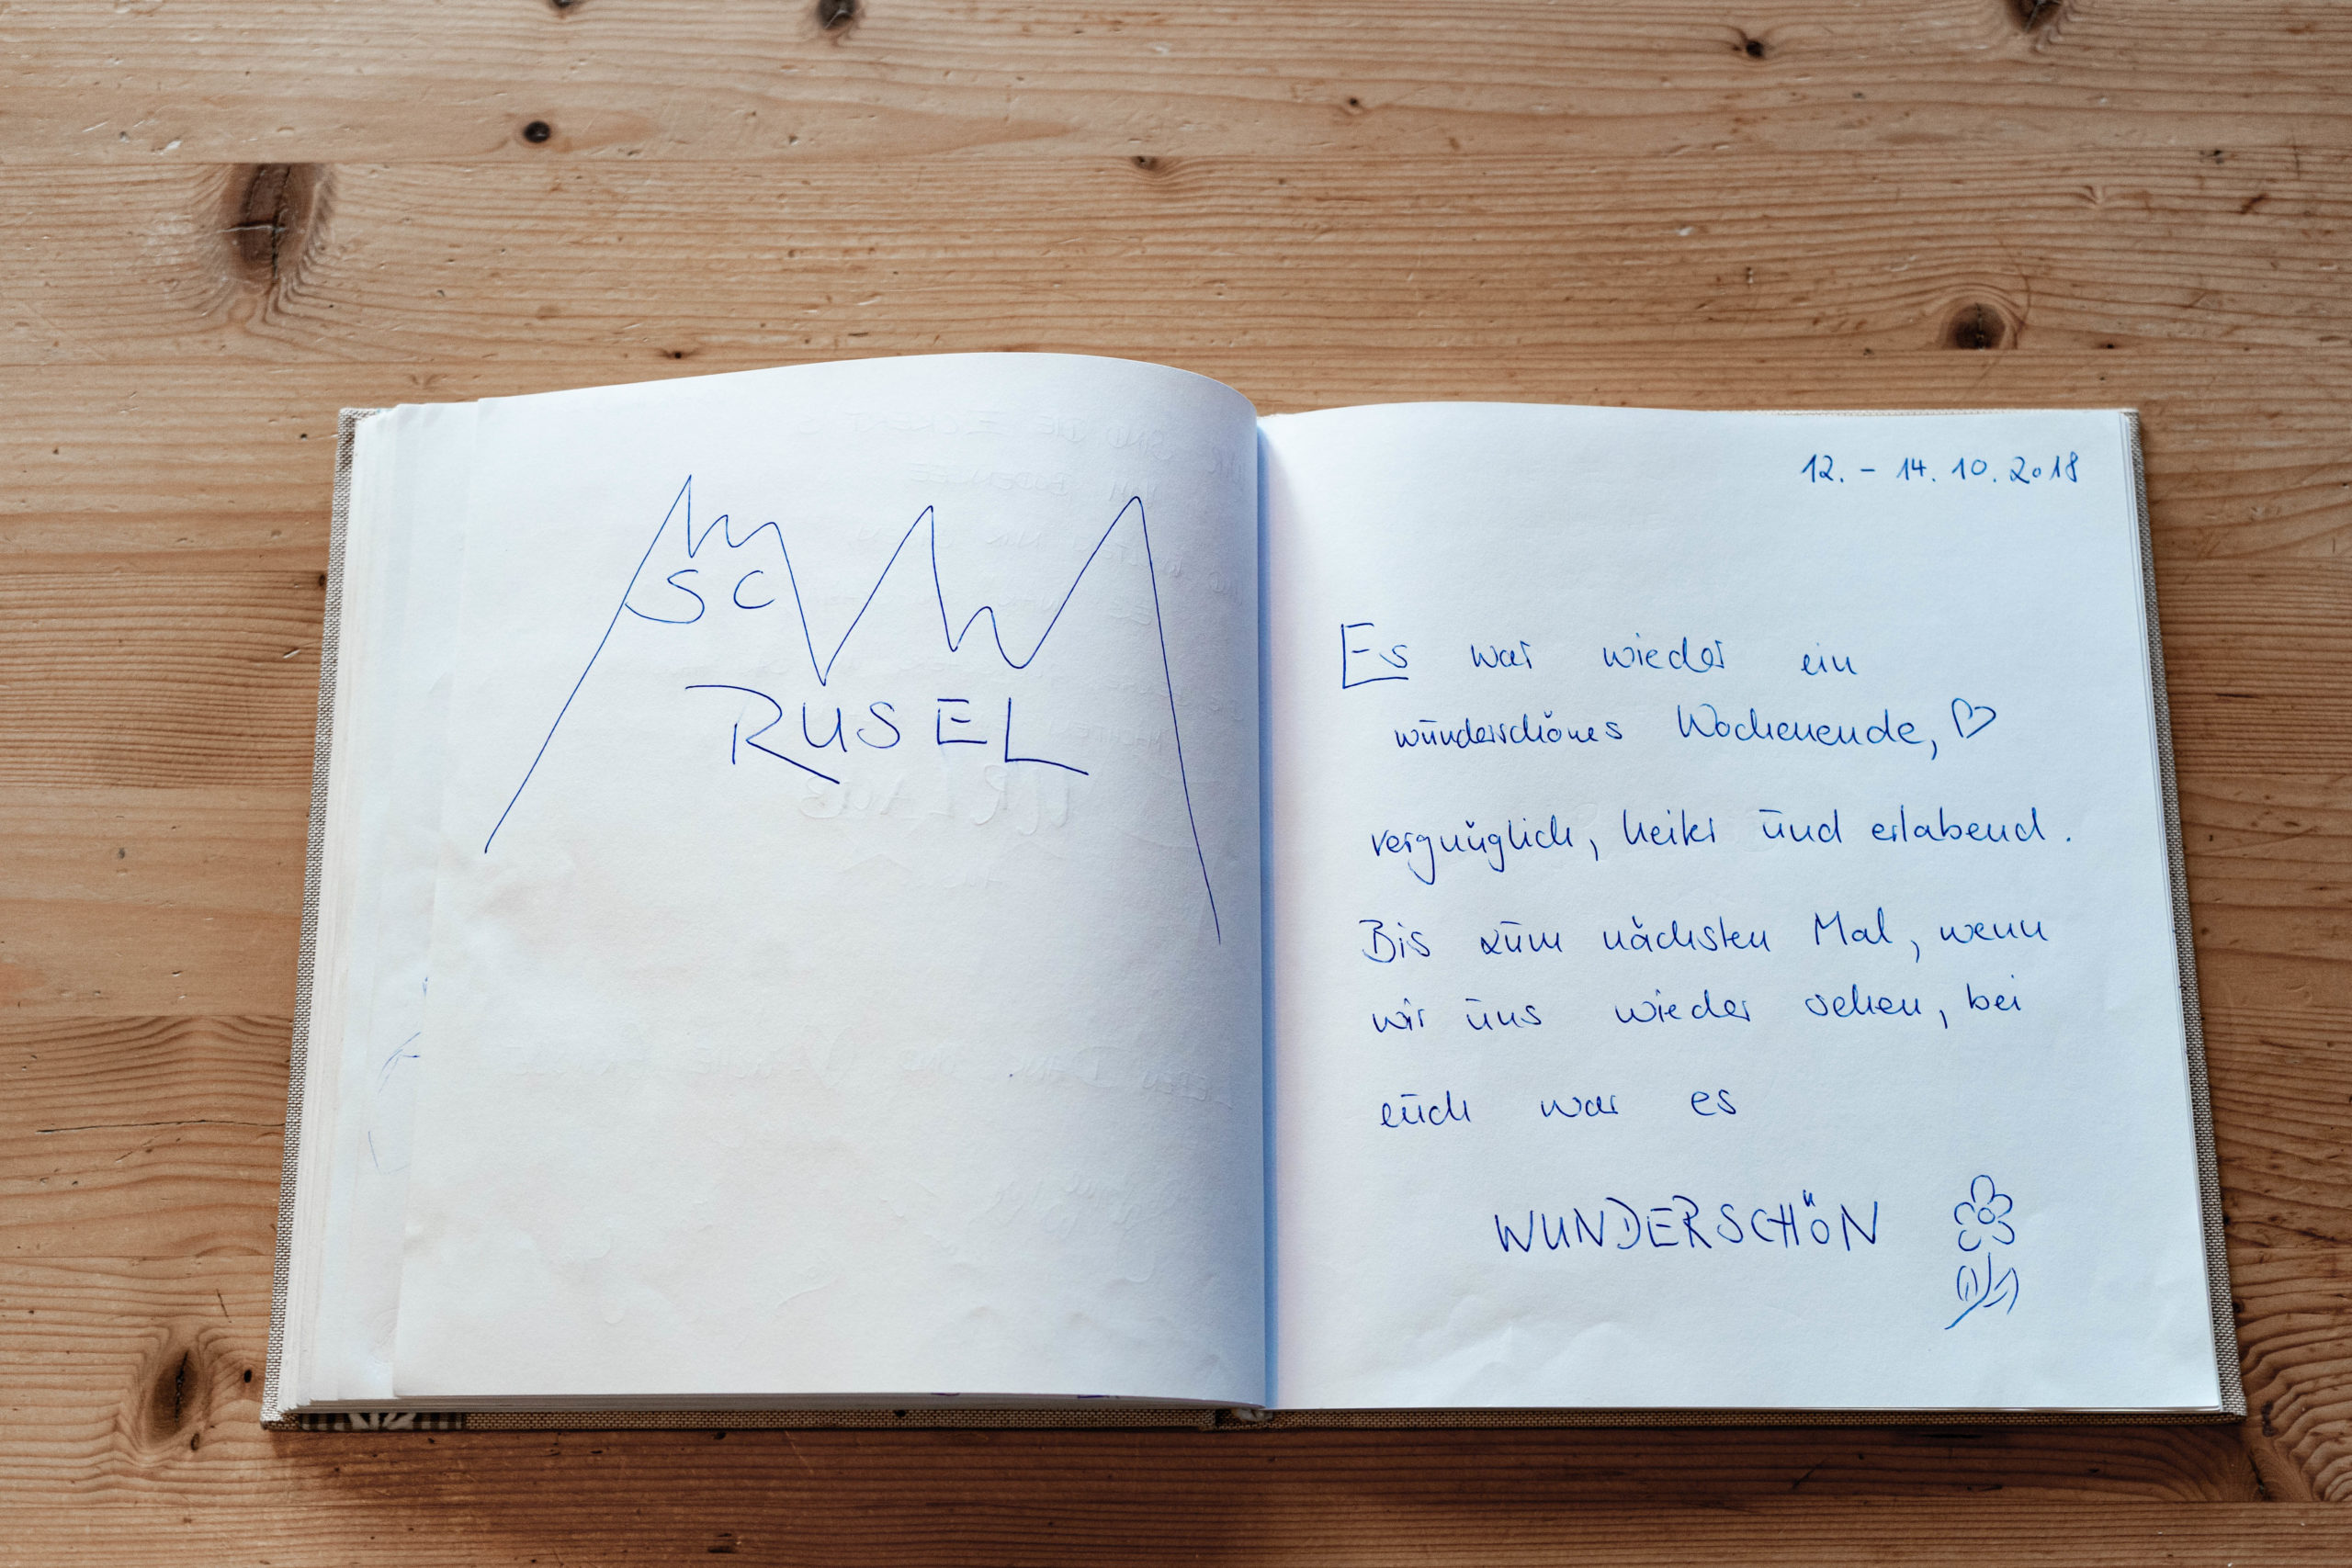 SC
RUSEL
12. - 14. 10. 2018
Es war wieder ein
wunderschönes Wochenende, ♡
vergnüglich, heiter und erlabend.
Bis zum nächsten Mal, wenn
wir uns wieder sehen, bei
euch war es
WUNDERSCHÖN